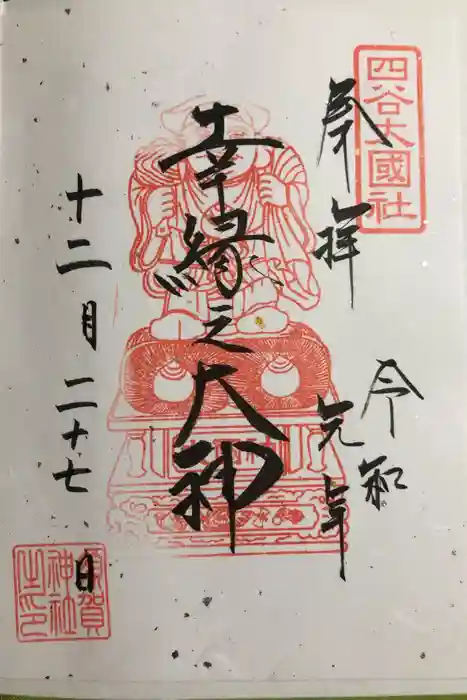 四谷大國社
奉拝
令和
元年
幸縁之大神
十二月二十七日
須賀
神社
之印